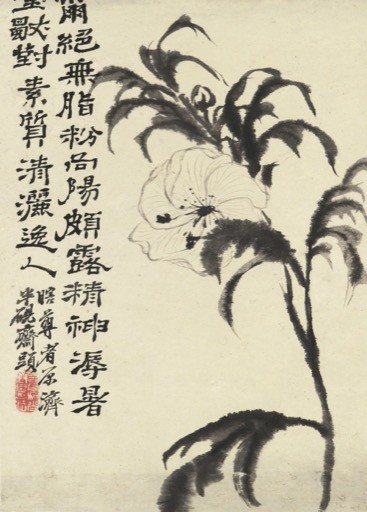 爾絕無脂粉向陽頗露精神溽暑
堂默對素質清灑逸人
瞎尊者原濟
半硯齋頭